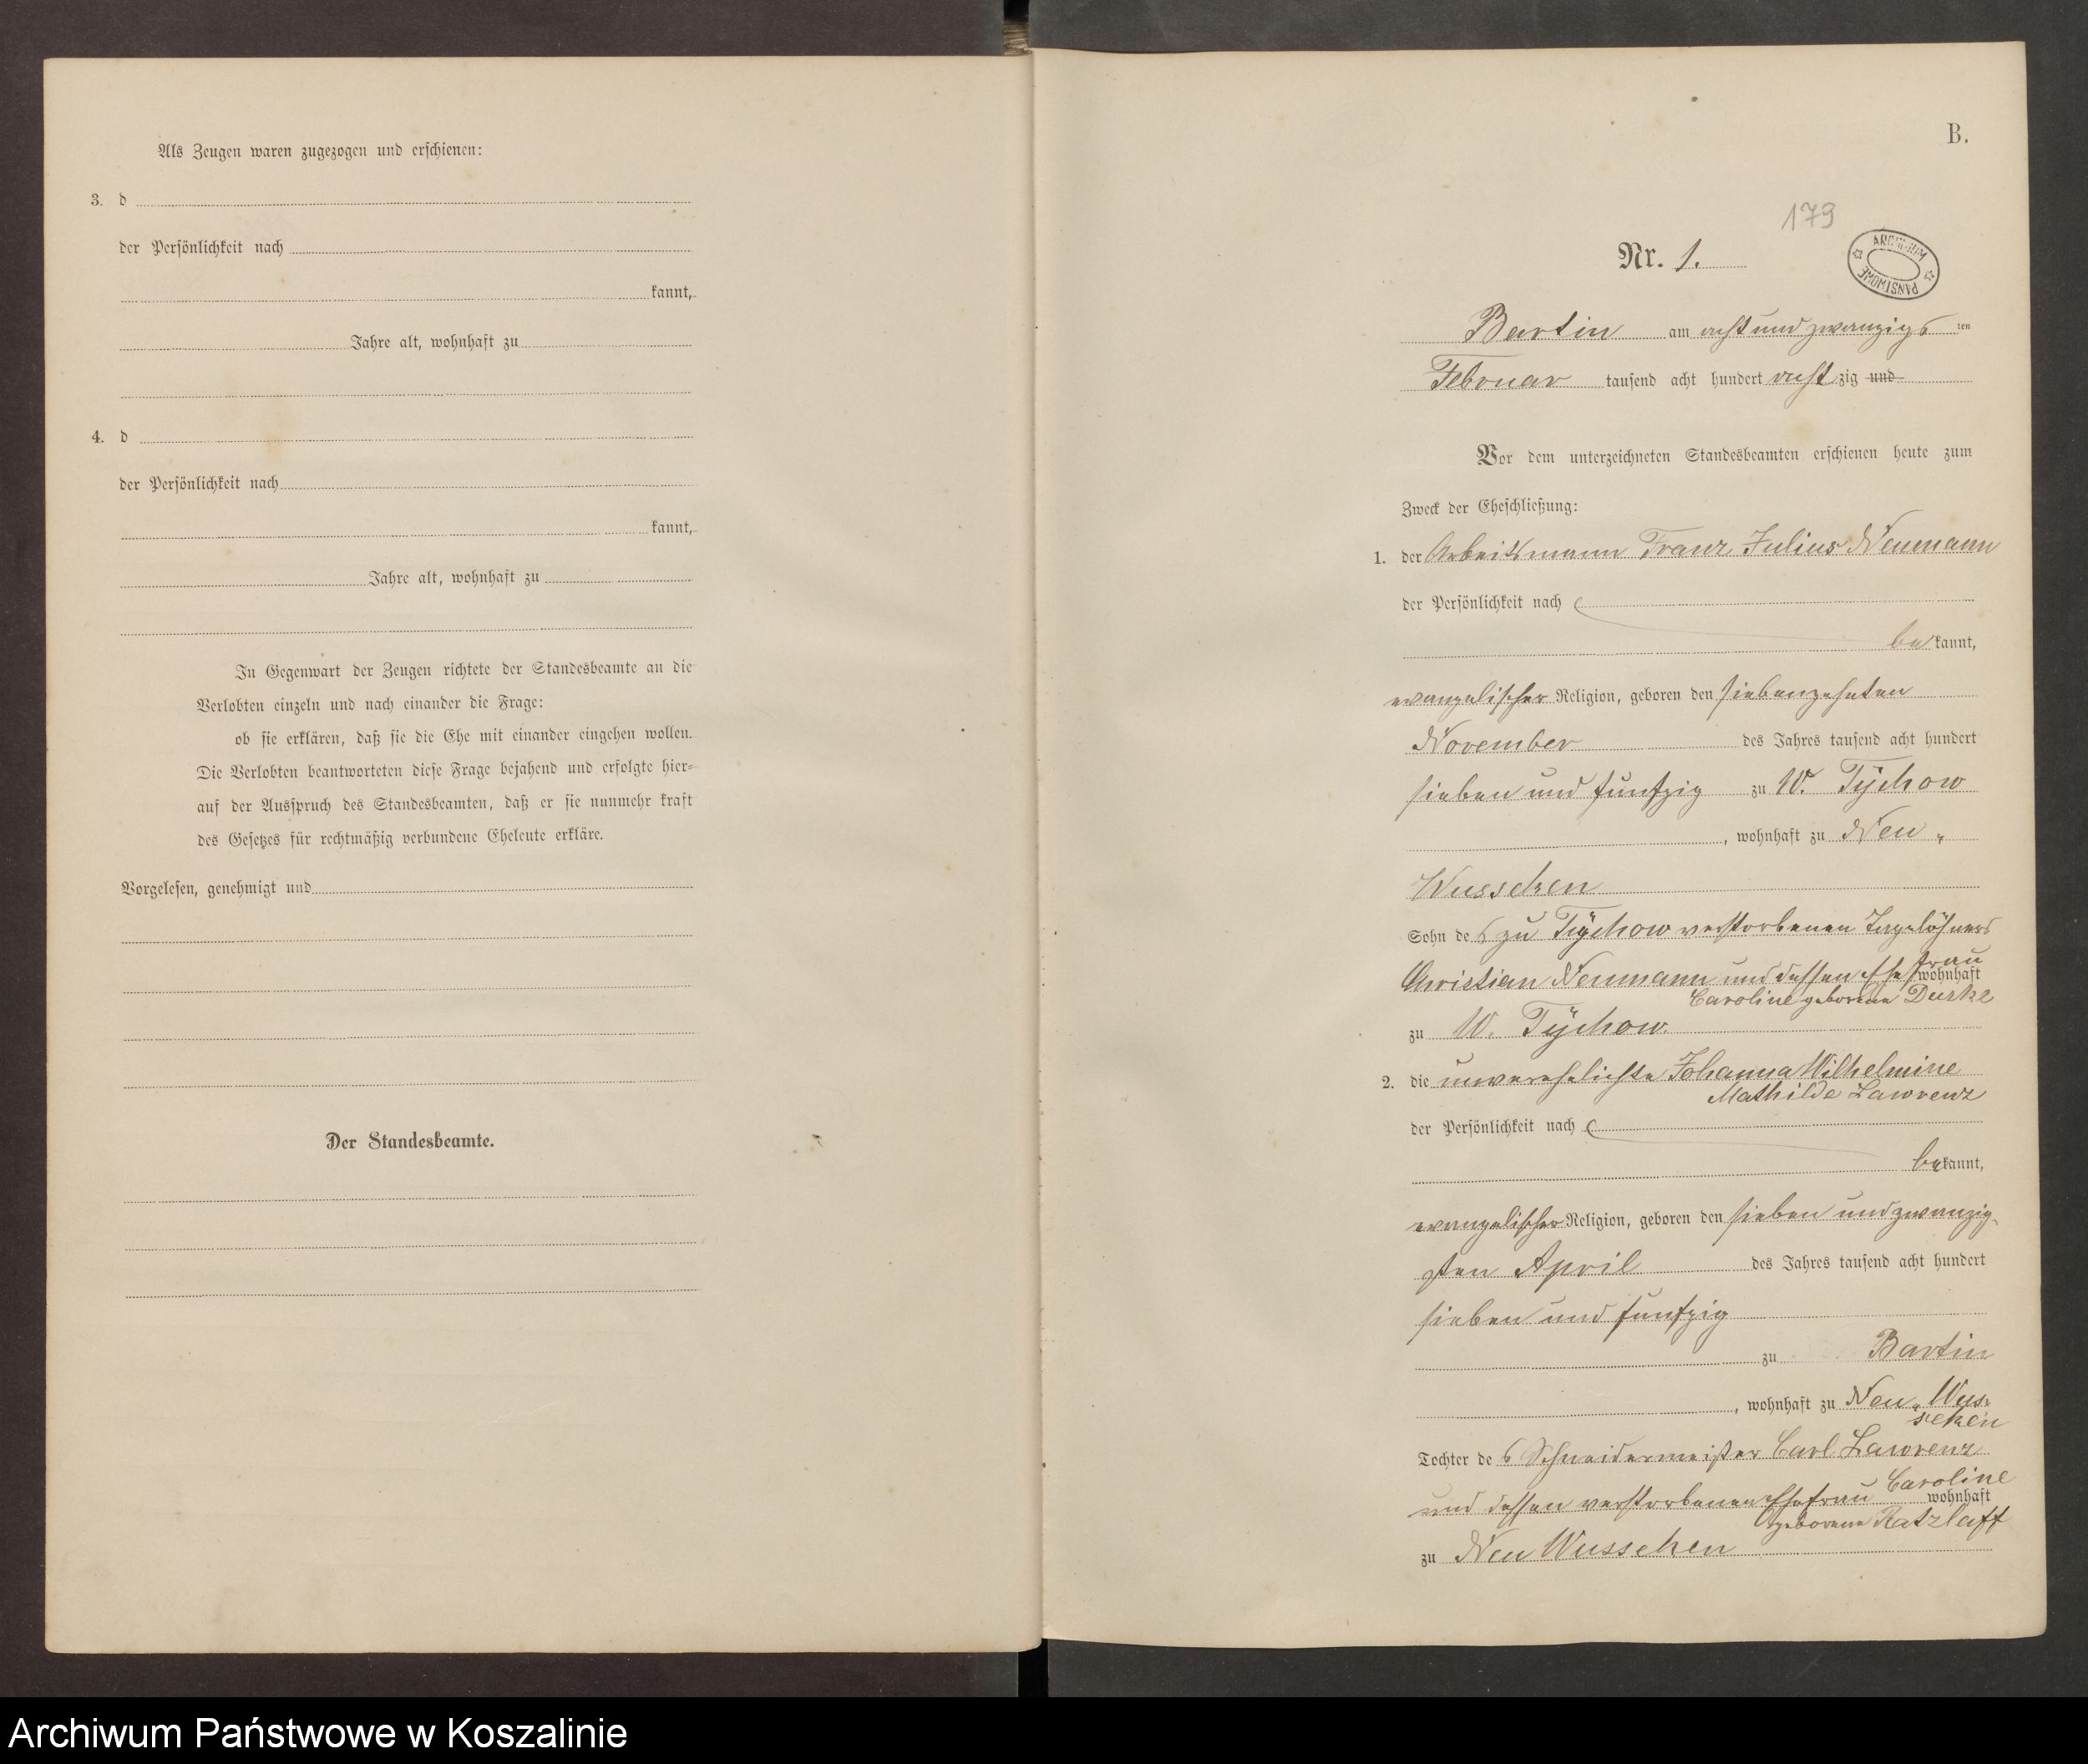 Als Zeugen waren zugezogen und erschienen:
3. d
der Persönlichkeit nach
kannt,
Jahre alt, wohnhaft zu
4. d
der Persönlichkeit nach
kannt,
Jahre alt, wohnhaft zu
In Gegenwart der Zeugen richtete der Standesbeamte an die
Verlobten einzeln und nach einander die Frage:
ob sie erklären, daß sie die Ehe mit einander eingehen wollen.
Die Verlobten beantworteten diese Frage bejahend und erfolgte hier-
auf der Ausspruch des Standesbeamten, daß er sie nunmehr kraft
des Gesetzes für rechtmäßig verbundene Eheleute erkläre.
Vorgelesen, genehmigt und
Der Standesbeamte.
B.
179
Nr. 1.
ARCHIWUM PAŃSTWOWE
Bartin am acht und zwanzigsten
Februar tausend acht hundert achtzig und
Vor dem unterzeichneten Standesbeamten erschienen heute zum
Zweck der Eheschließung:
1. der Arbeitsmann Franz Julius Neumann
der Persönlichkeit nach
bekannt,
evangelischer Religion, geboren den siebenzehnten
November des Jahres tausend acht hundert
sieben und funfzig zu W. Tychow
, wohnhaft zu Neu-
Wusseken
Sohn des zu Tychow verstorbenen Tagelöhners
Christian Neumann und dessen Ehefrau
Caroline geborene Duske wohnhaft
zu W. Tychow
2. die unverehelichte Johanna Wilhelmine
Mathilde Lawrenz
der Persönlichkeit nach
bekannt,
evangelischer Religion, geboren den sieben und zwanzig-
sten April des Jahres tausend acht hundert
sieben und funfzig
zu Bartin
, wohnhaft zu Neu-Wus-
seken
Tochter des Schneidermeister Carl Lawrenz
und dessen verstorbenen Ehefrau Caroline
geborene Ratzlaff wohnhaft
zu Neu Wusseken
Archiwum Państwowe w Koszalinie